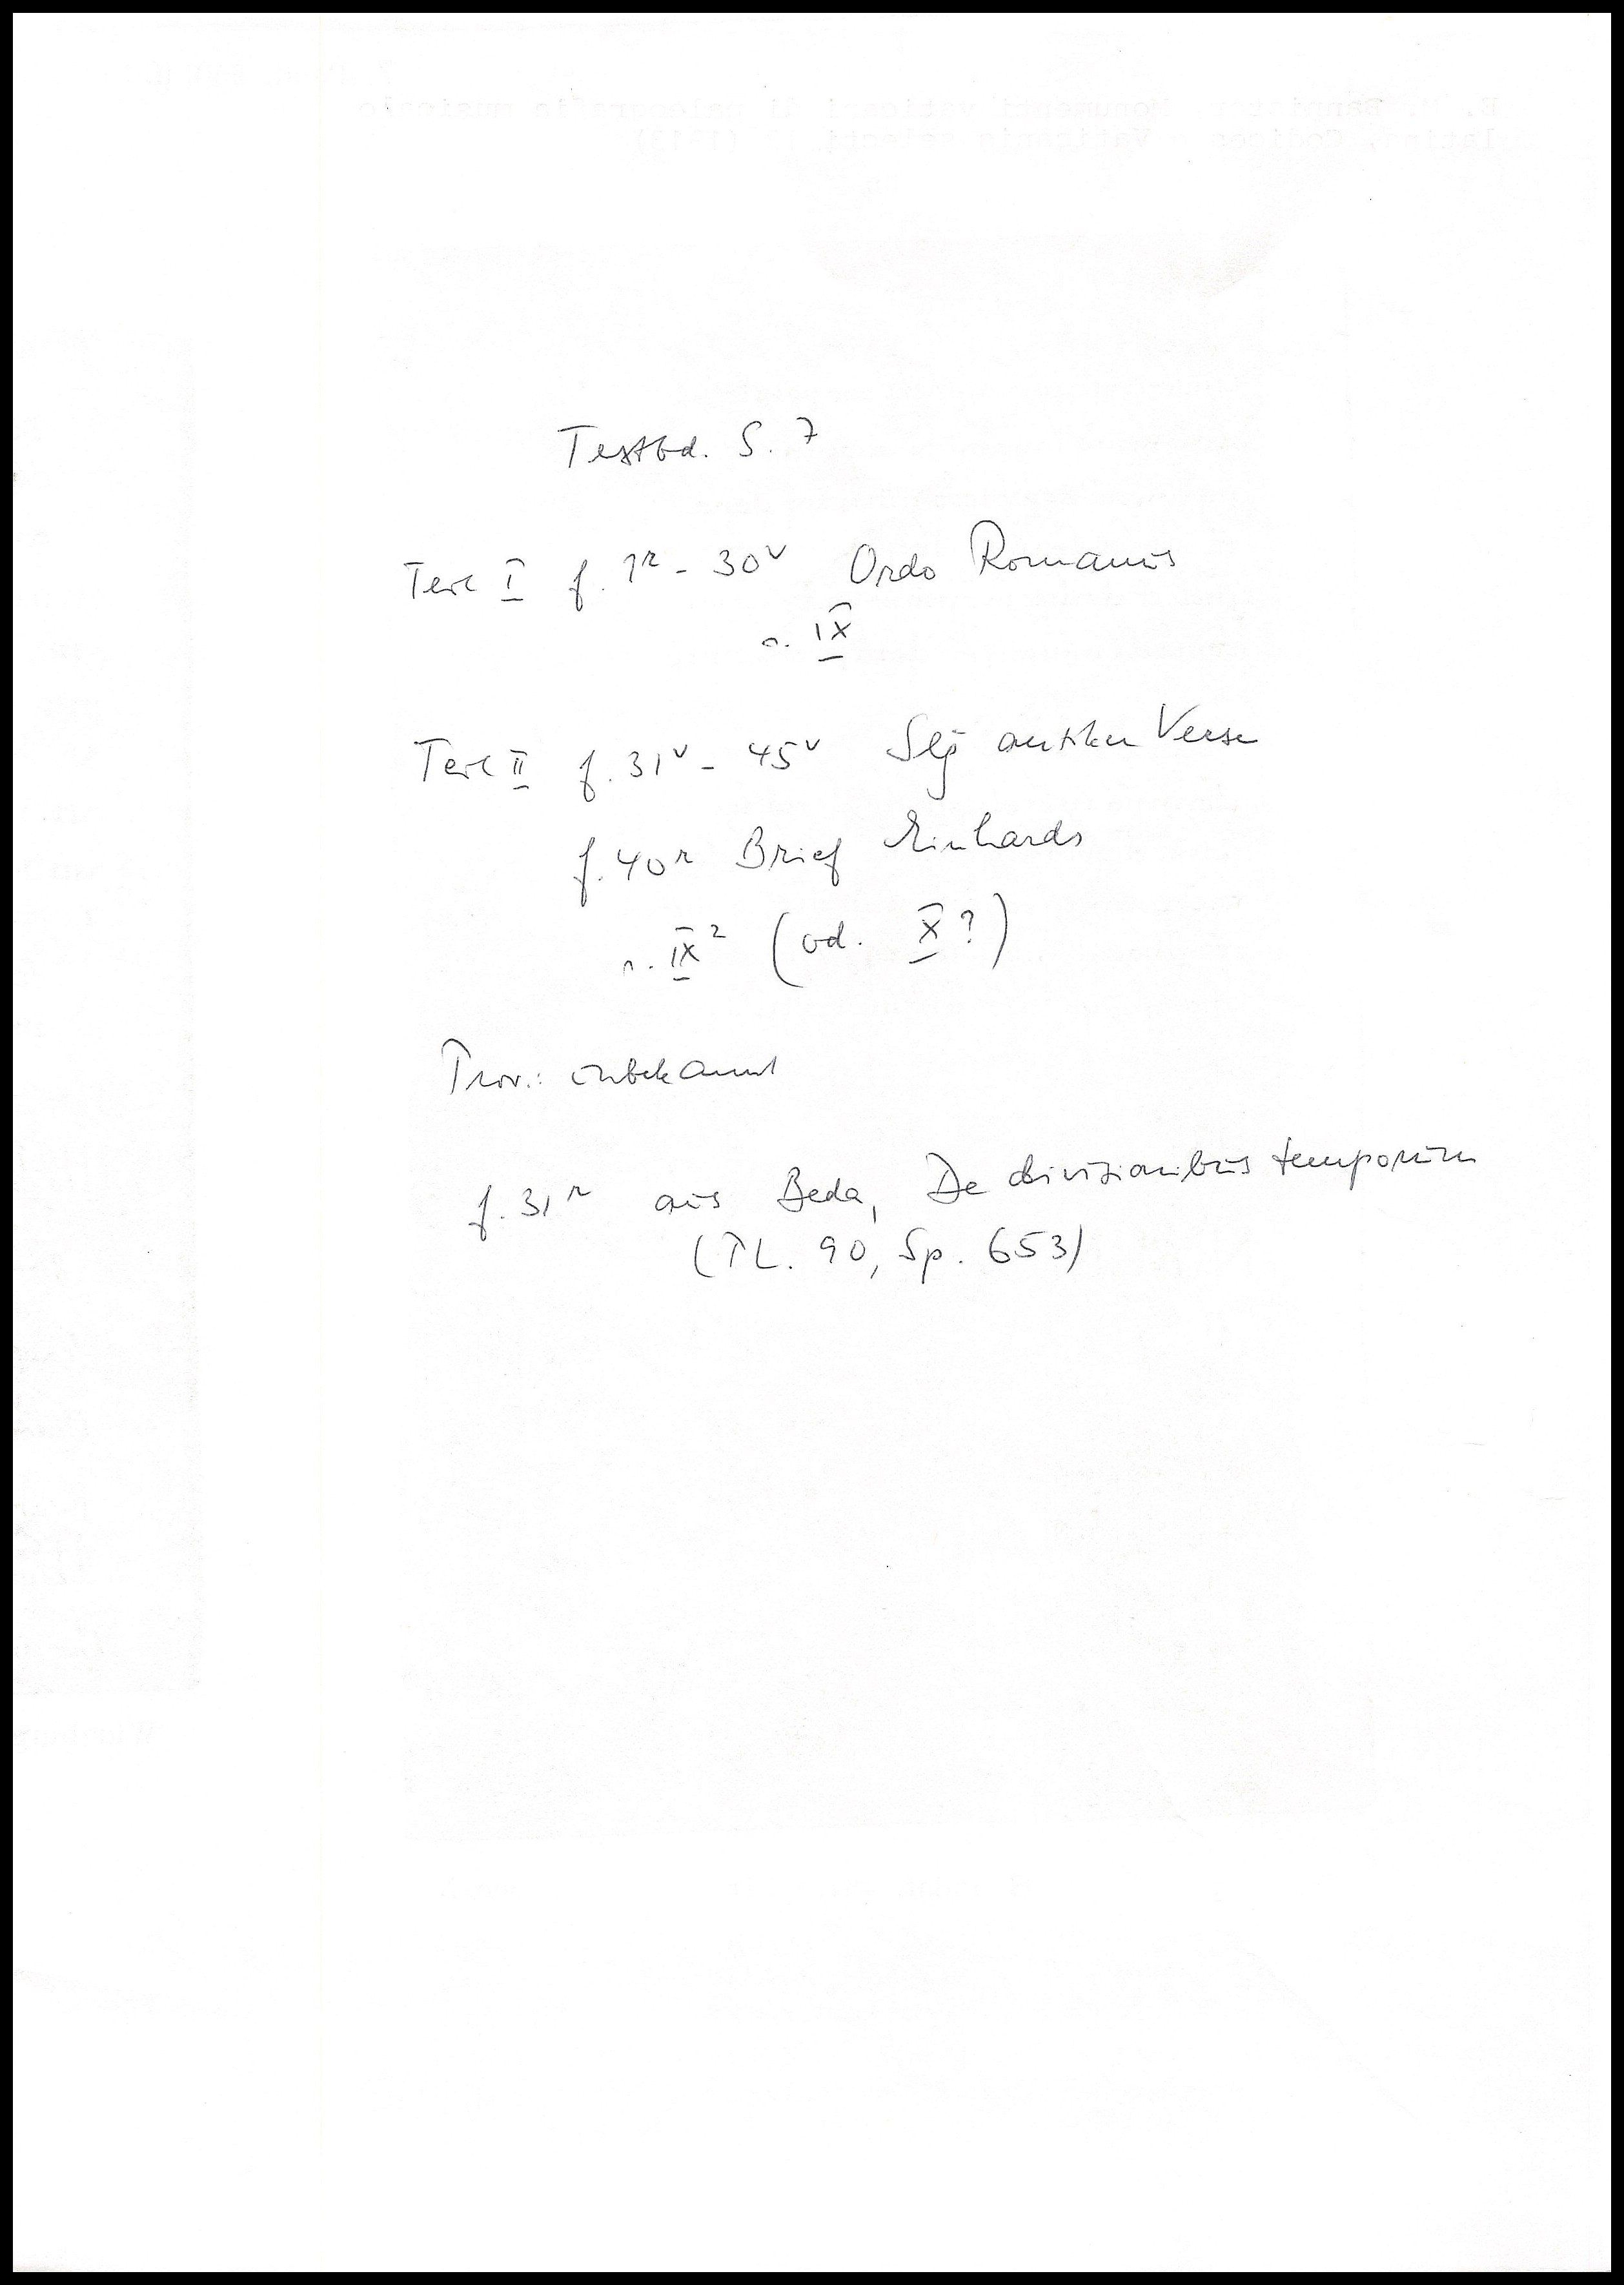 Textbd. S. 7
Teil I f. 1r - 30v Ordo Romanus
s. IX
Teil II f. 31v - 45v Slg antiker Verse
f. 40r Brief Einhards
s. IX² (od. X?)
Prov.: unbekannt
f. 31r aus Beda, De divisionibus temporum
(PL. 90, Sp. 653)